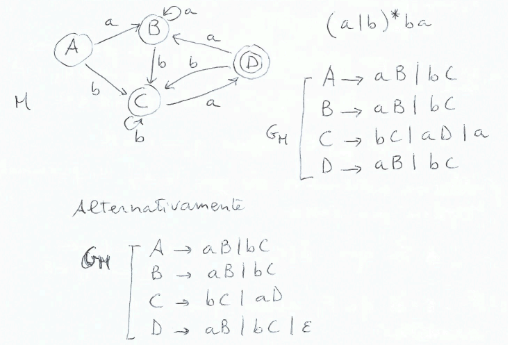 a
B
a
(a|b)*ba
A
b
b
a
D
b
C
a
b
M
A → aB | bC
B → aB | bC
G_M
C → bC | aD | a
D → aB | bC
Alternativamente
G_M
A → aB | bC
B → aB | bC
C → bC | aD
D → aB | bC | ε